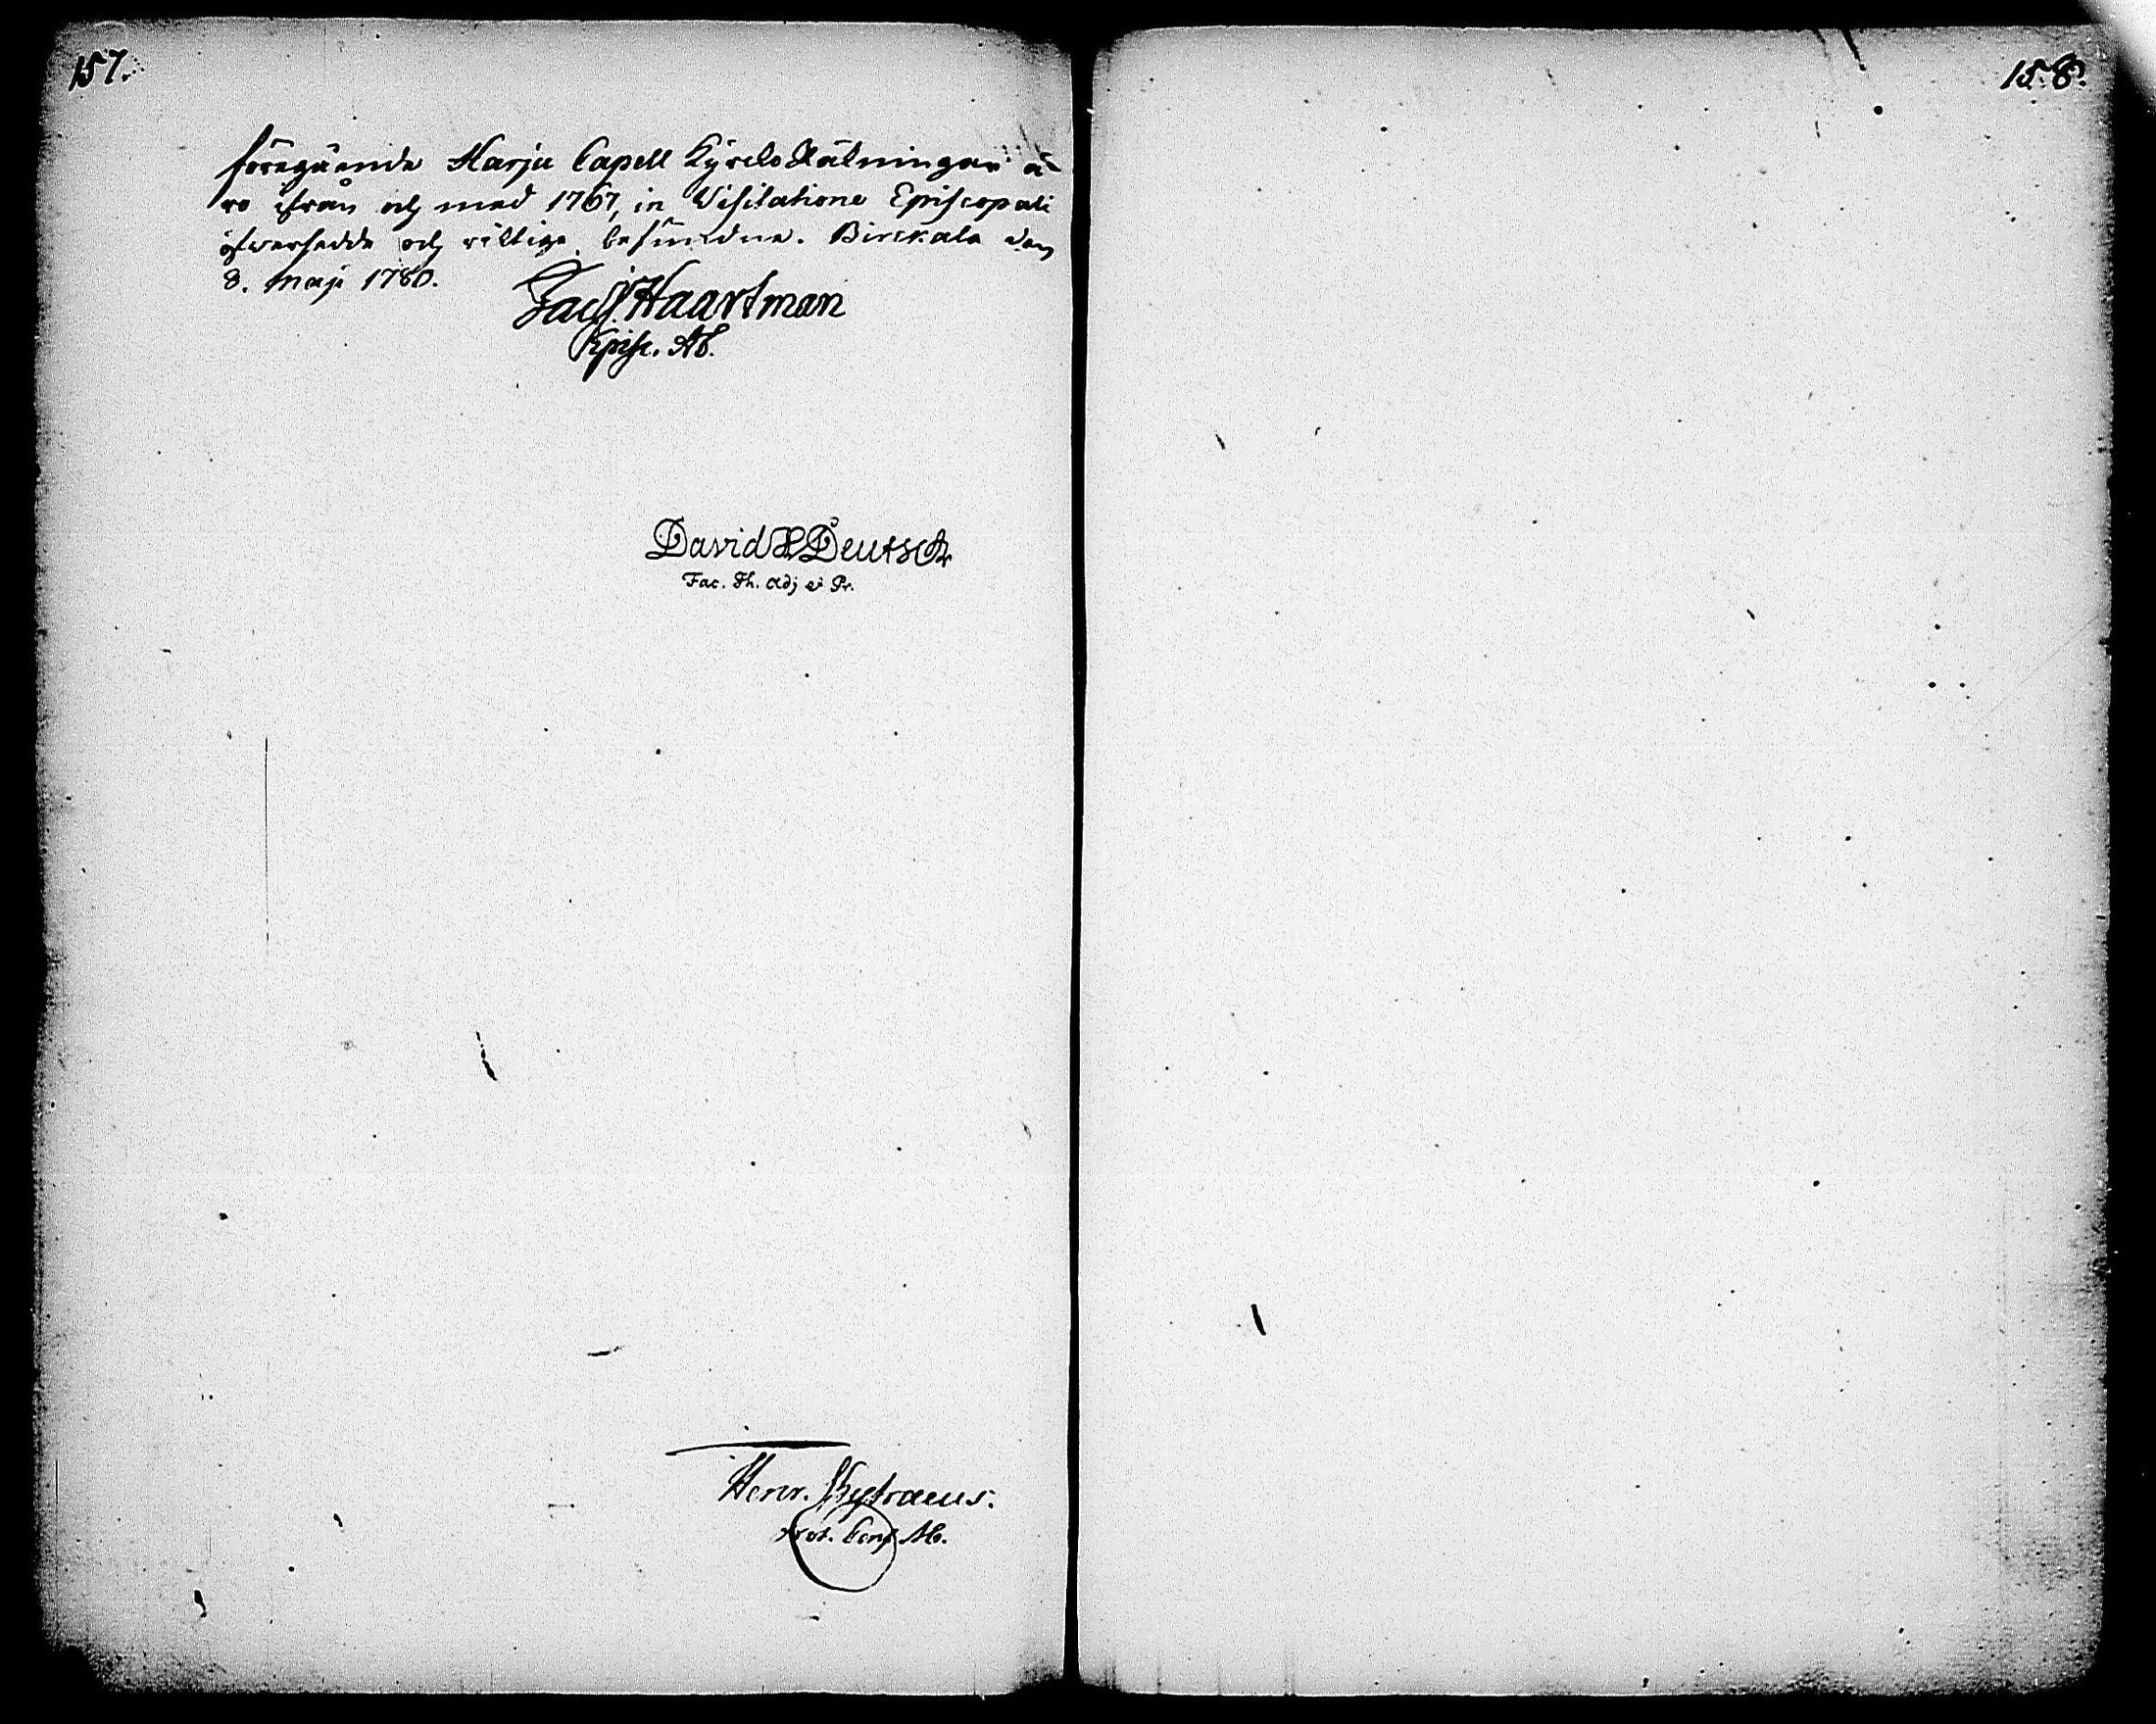 157.
föregående Harju Capell Kyrcko Räkningar ä-
ro ifrån och med 1767, in Visitatione Episcopali
öfwersedde och riktige befundne. Birckala den
8. Maji 1780.
Jac. Haartman
Episc. Ab.
David H Deutsch
Fac. Th. Adj et Pr.
Henr. Kytraeus.
Not. Cons. Ab.
158.